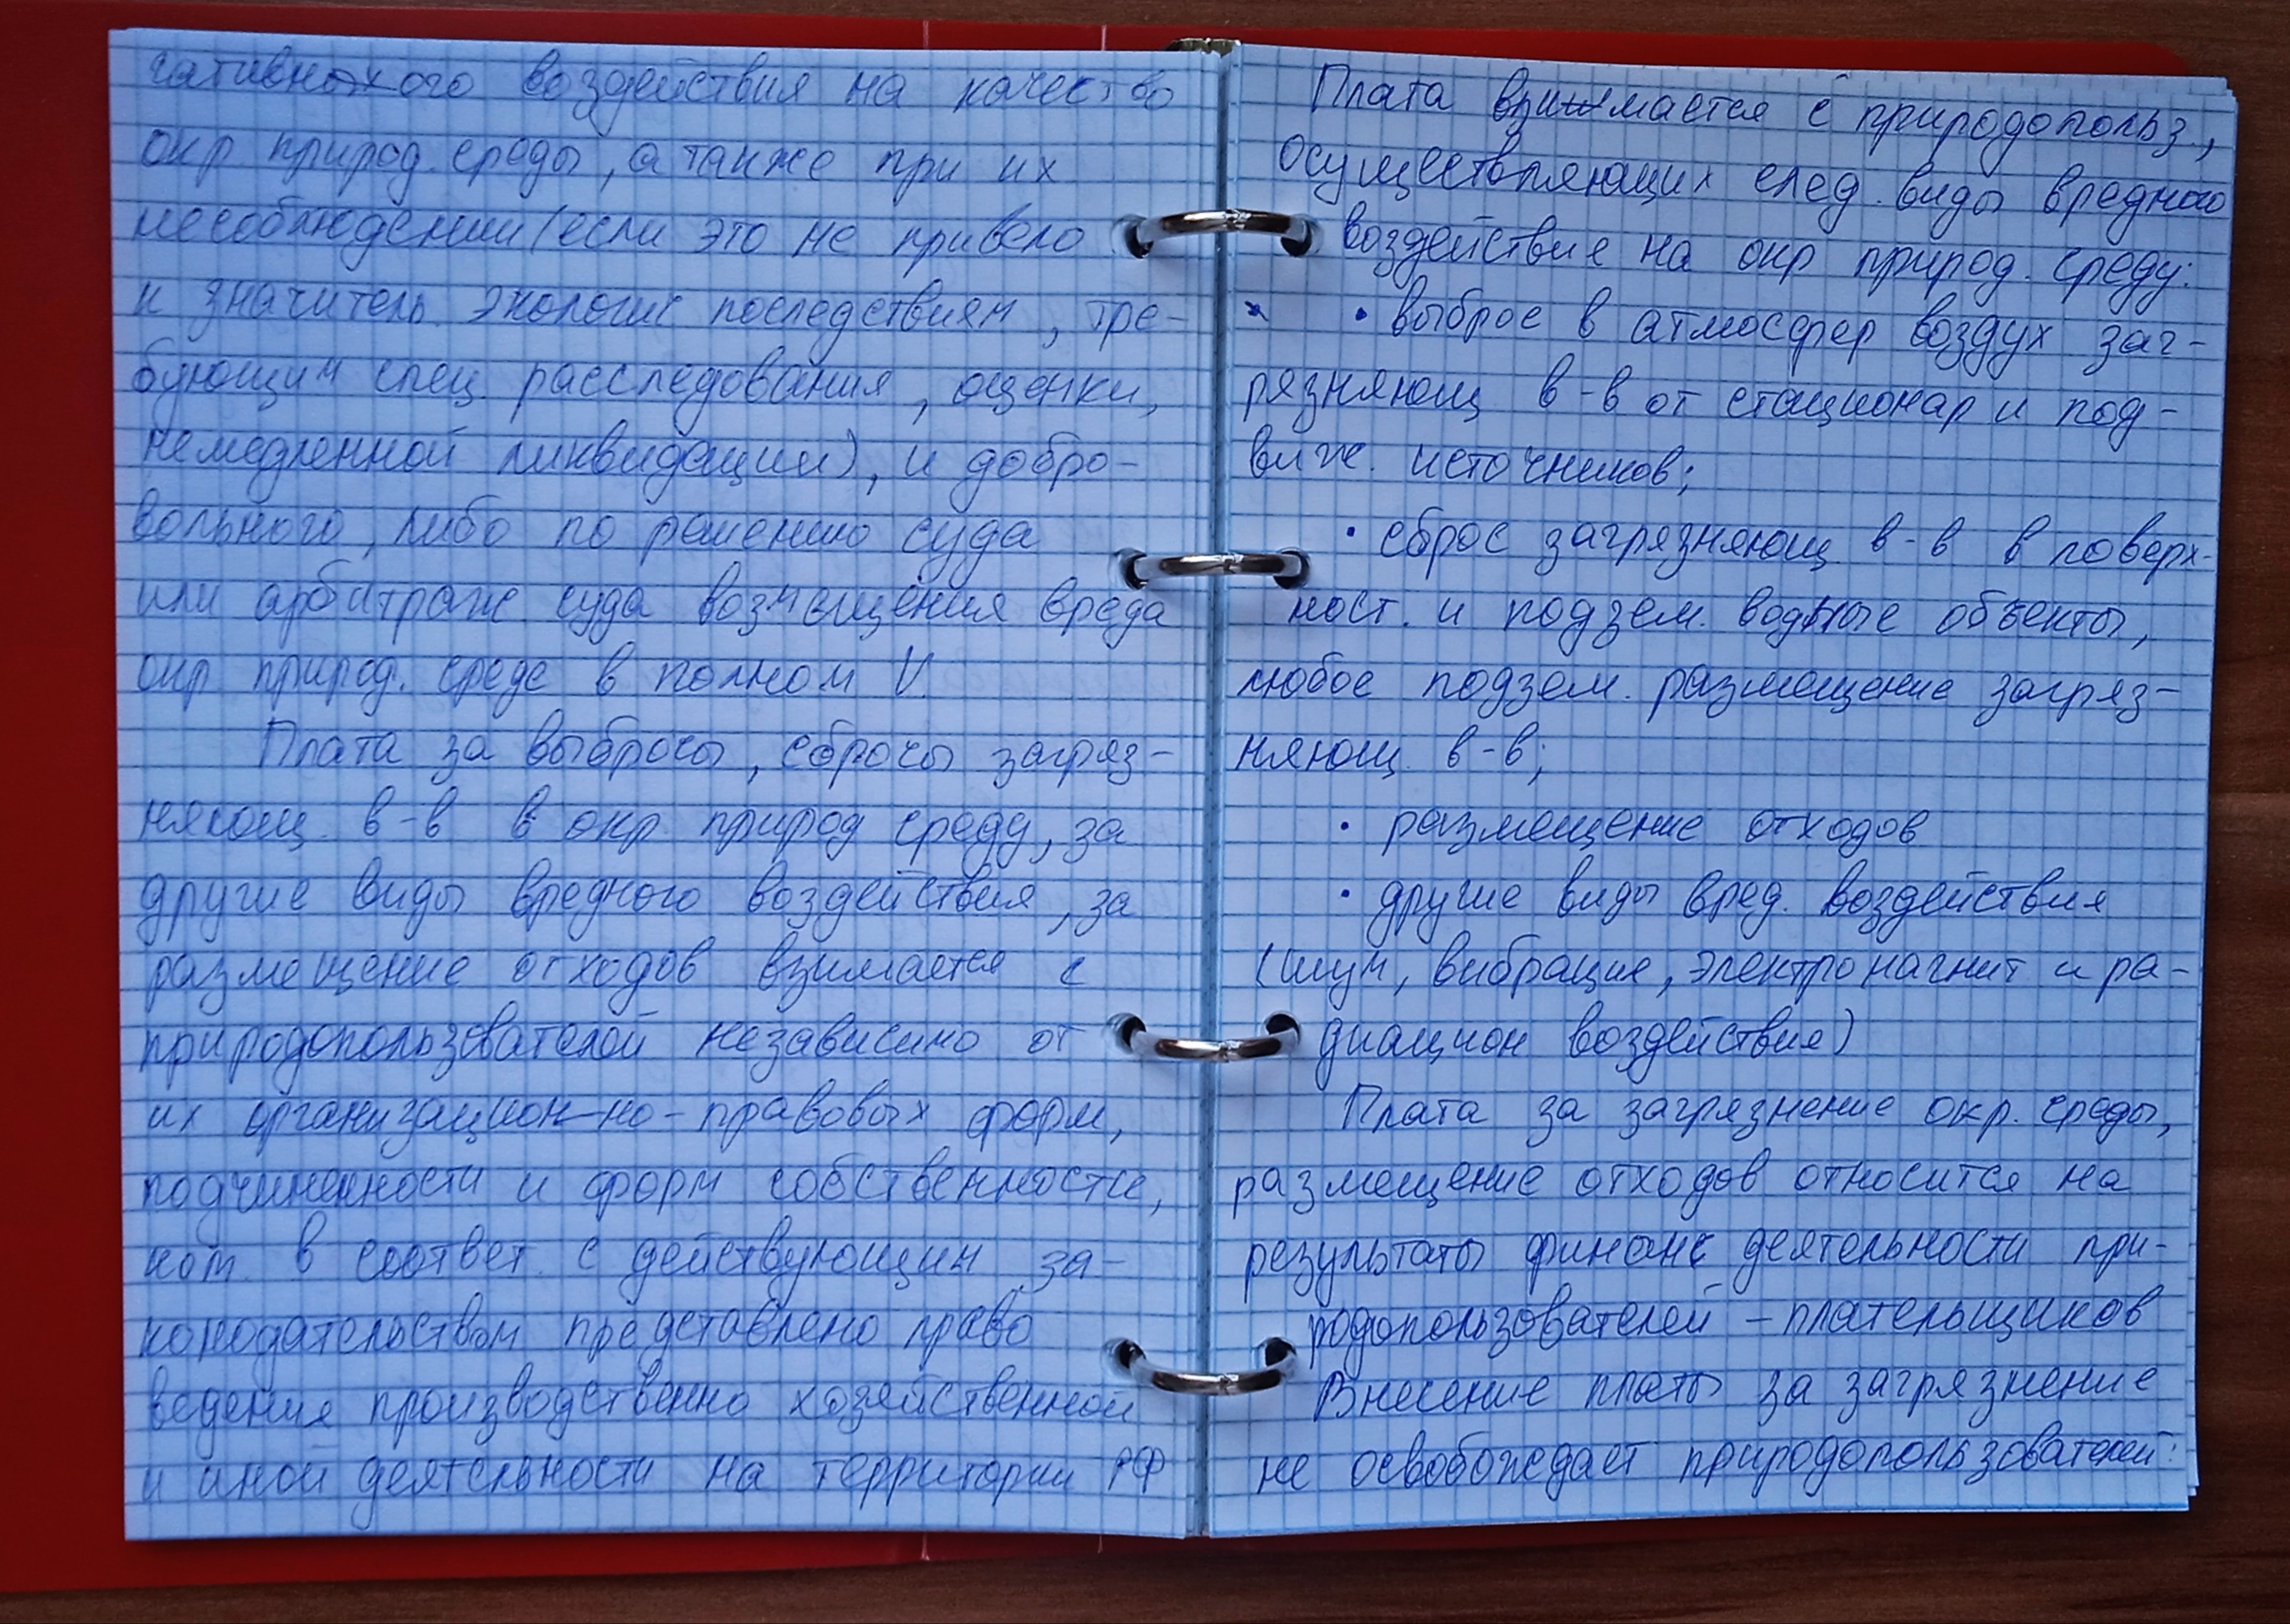 гативного воздействия на качество
окр природ. среды, а также при их
несоблюдении (если это не привело
к значитель. экологич последствиям, тре-
бующим спец. расследования, оценки,
немедленной ликвидации), и добро-
вольного, либо по решению суда
или арбитраж суда возмещения вреда
окр природ. среде в полном V.
Плата за выбросы, сбросы загряз-
няющ. в-в в окр. природ среду, за
другие виды вредного воздействия, за
размещение отходов взимается с
природопользователей независимо от
их организацион-но-правовых форм,
подчиненности и форм собственности,
кот. в соответ. с действующим за-
конодательством представлено право
ведения производственно хозяйственной
и иной деятельности на территории РФ
Плата взимается с природопольз.,
осуществляющих след. виды вредного
воздействия на окр природ. среду:
• выброс в атмосфер воздух заг-
рязняющ в-в от стационар и под-
виж. источников;
• сброс загрязняющ. в-в в поверх-
ност. и подзем. водные объекты,
любое подзем. размещение загряз-
няющ. в-в;
• размещение отходов
• другие виды вред. воздействия
(шум, вибрация, электромагнит и ра-
диацион воздействия)
Плата за загрязнение окр. среды,
размещение отходов относится на
результаты финанс деятельности при-
родопользователей - плательщиков
Внесение платы за загрязнение
не освобождает природопользователей: